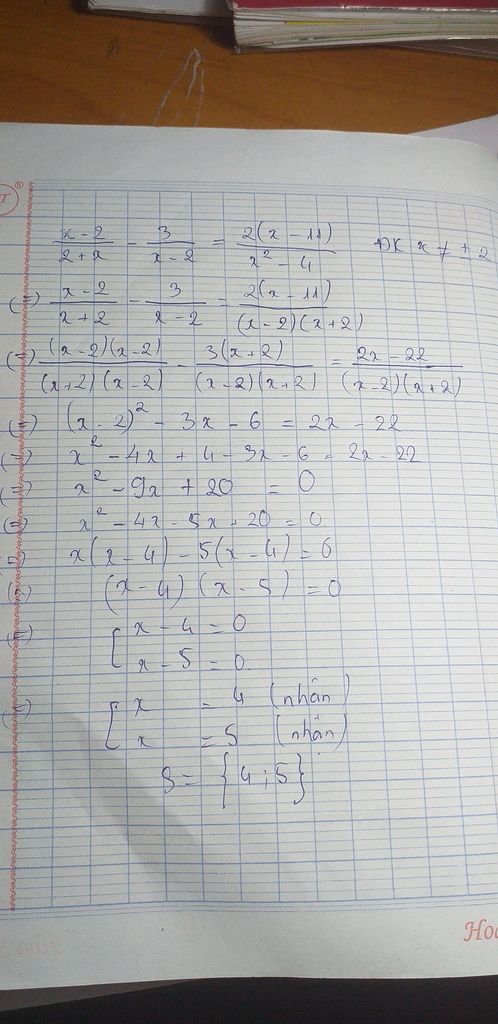 (x - 2)/(2 + x) - 3/(x - 2) = 2(x - 11)/(x² - 4) ĐK x ≠ ± 2
(=) (x - 2)/(x + 2) - 3/(x - 2) = 2(x - 11)/((x - 2)(x + 2))
(=) (x - 2)(x - 2)/((x + 2)(x - 2)) - 3(x + 2)/((x - 2)(x + 2)) = (2x - 22)/((x - 2)(x + 2))
(=) (x - 2)² - 3x - 6 = 2x - 22
(=) x² - 4x + 4 - 3x - 6 = 2x - 22
(=) x² - 9x + 20 = 0
(=) x² - 4x - 5x + 20 = 0
(=) x(x - 4) - 5(x - 4) = 0
(=) (x - 4)(x - 5) = 0
(=) [ x - 4 = 0
x - 5 = 0
(=) [ x = 4 (nhân)
x = 5 (nhân)
S = {4 ; 5}